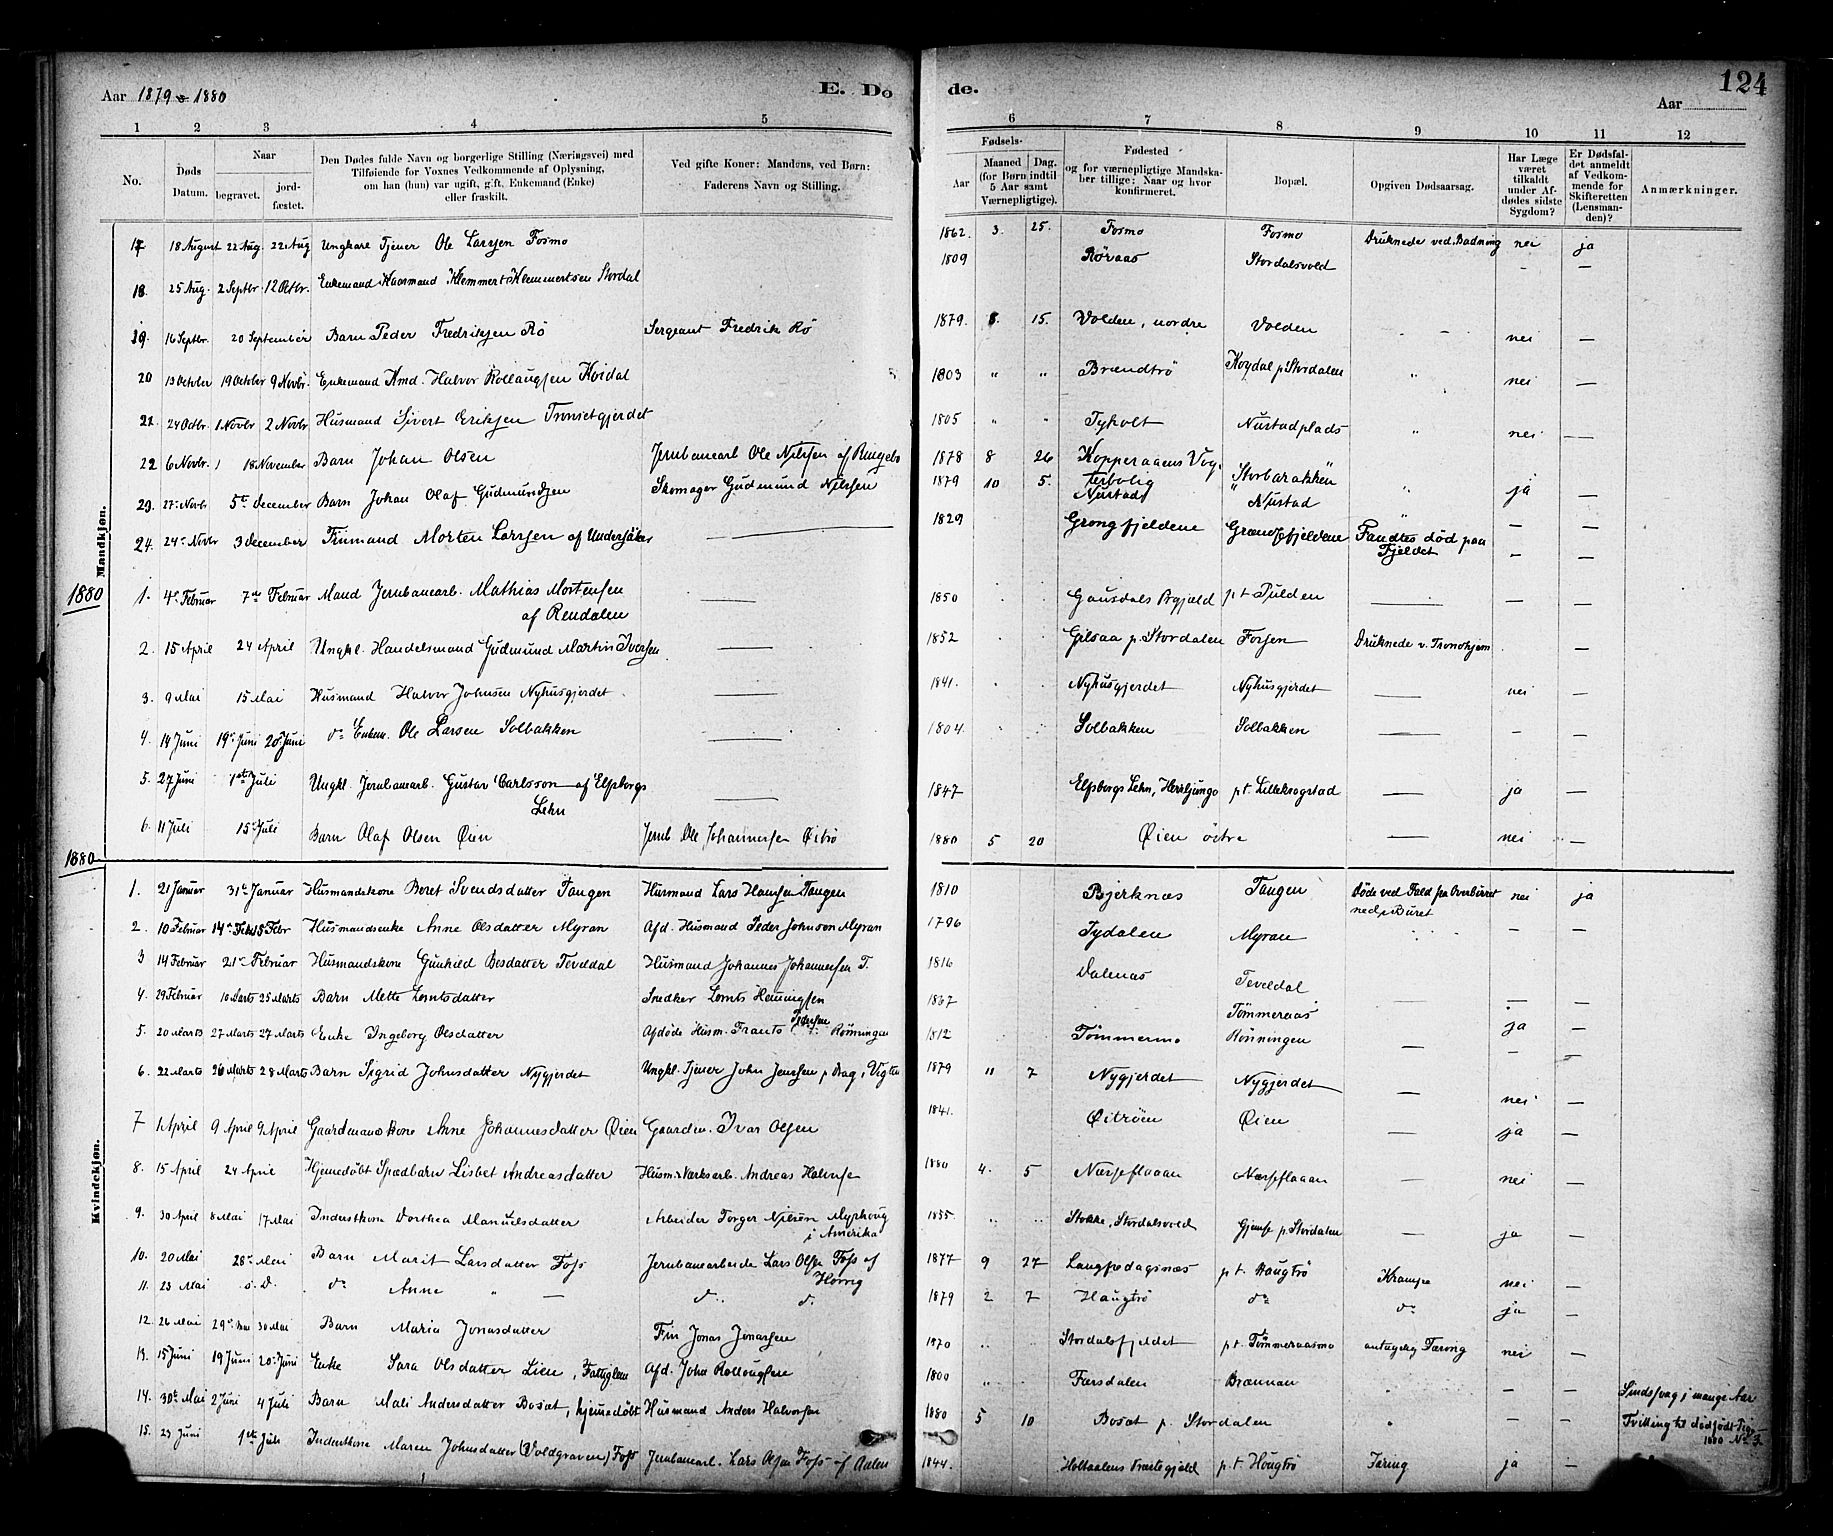 124
Aar 1879 & 1880
E. Dø
de.
Aar
1 2 3 4 5 6 7 8 9 10 11 12
No.
Døds Datum.
Naar
begravet.
jordfæstet.
Den Dødes fulde Navn og borgerlige Stilling (Næringsvei) med
Tilføiende for Voxnes Vedkommende af Oplysning,
om han (hun) var ugift, gift, Enkemand (Enke)
eller fraskilt.
Ved gifte Koner: Mandens, ved Børn:
Faderens Navn og Stilling.
Fødsels-
Aar
Maaned Dag.
(for Børn indtil
5 Aar samt
Værnepligtige).
Fødested
og for værnepligtige Mandska-
ber tillige: Naar og hvor
konfirmeret.
Bopæl.
Opgiven Dødsaarsag.
Har Læge
været
tilkaldt
under Af-
dødes sidste
Sygdom?
Er Dødsfal-
det anmeldt
af Vedkom-
mende for
Skifteretten
(Lensman-
den)?
Anmærkninger.
Mandkjøn.
17 18 August 22 Aug. 22 Aug Ungkare Tjener Ole Larssen Formo 1862. 3. 25. Formo Formo Druknede ved Badning nei ja
18. 25 Aug. 2 Septbr 12 Octbr. Enkemand Kaarmand Klemmert Klemmertsen Stordal 1809 Røraas Stordalsvold - —
19. 16 Septbr. 20 September Barn Peder Fredriksen Rø Sergeant Fredrik Rø 1879. 8. 15. Volden, nordre Volden nei —
20 13 October 19 October 9 Novbr. Enkemand Kmd. Halvor Rollaugsen Koidal 1803 " " Brændtrø Kogdal p Stordalen " nei —
21. 24 Octbr. 1 Novbr 2 Novbr Husmand Sivert Eriksen Tronsetgjerdet 1805 " " Tyholt Nustadplads " nei —
22 6 Novbr. 18 November Barn Johan Olsen Jernbanearb Ole Nilssen af Ringebo 1878 8 26 Kopperaaens Vog- terbolig Storbarakken
23. 27 Novbr 5te December Barn Johan Olaf Gudmundsen Skomager Gudmund Nilssen 1879 10 5. Nustad Nustad ja —
24. 24 Novbr 3 December Finmand Morten Larssen af Undersåker 1829 Grongfjeldene Grændsefjeldene Fandtes død paa Fjeldet — —
1880
1. 4de Februar 7de Februar Mand Jernbanearb. Mathias Mortensen af Rendalen 1850 Gausdals Prgjæld p t Fulden — — —
2. 15 April 24 April Ungkl. Handelsmand Gudmund Martin Iversen 1852 Gilsaa p. Stordalen Forsen Druknede v. Trondhjem —
3. 9 Mai 15 Mai Husmand Halvor Johnsen Nyhusgjerdet 1841. Nyhusgjerdet Nyhusgjerdet — nei —
4. 14 Juni 19de Juni 20de Juni do Enkem. Ole Larsen Solbakken 1804. Solbakken Solbakken — — —
5. 27 Juni 1ste Juli Ungkl. Jernbanearb. Gustav Carlsson af Elfsborgs Lehn 1847 Elfsborgs Lehn, Herrljunga p.t. Lillekrogstad — ja —
6. 11 Juli 15de Juli Barn Olaf Olsen Øien Jernb Ole Johannessen Øitrø 1880 5 20 Øien østre — nei —
1880
Kvindekjøn.
1. 21 Januar 31te Januar Husmandskone Beret Svendsdatter Tangen Husmand Lars Hansen Tangen 1810 Bjerknæs Tangen Døde ved Fald fra Overbürret ned p Büret nei ja
2. 10 Februar 14de Feb 15 Febr Husmandsenke Anne Olsdatter Myran Afd. Husmand Peder Johnson Myran 1796 Tydalen Myran — —
3 14 Februar 21de Februar Husmandskone Gunhild Besdatter Teveldal Husmand Johannes Johannessen T. 1816 Dalenæs Teveldal — — —
4. 29 Februar 10 Marts 25 Marts Barn Mette Lorntsdatter Snedker Lornts Henningsen 1867 Tømmeraas — ja —
5. 20 Marts 27 Marts 27 Marts Enke Ingeborg Olsdatter Afdøde Husm. Frants Pedersen Rønningen 1812 Tømmermo Rønningen — — —
6. 22 Marts 26 Marts 28 Marts Barn Sigrid Johnsdatter Nygjerdet Ungkl. Tjener John Jenssen p Drag i Vigten 1879 11 7 Nygjerdet Nygjerdet nei —
7 1 April 9 April 9 April Gaardmandskone Anne Johannesdatter Øien Gaardm. Ivar Olsen 1841. Øitrøen Øien — ja —
8. 15 April 24 April Hjemedøbt Spædbarn Lisbet Andreasdatter Husm. Værksarb. Andreas Halvorse 1880 4. 5 Næsseflaaan Næsseflaaan — nei —
9. 30 April 8 Mai 17 Mai Inderstkone Dorthea Manuelsdatter Arbeider Torger Nilsøn Myrhoug i Amerika 1855 Stokke, Stordalsvold Gjemse p. Stordalen — ja —
10. 20 Mai 28de Mai Barn Marit Larsdatter Foss Jernbanearbeide Lars Olsen Foss af Horrig 1877 9 27 Langpedagsnæs p t. Haugtrø Krampe nei —
11. 23 Mai s. D. do Anne " — d. d. 1879 2 7 Haugtrø do do ja —
12. 26 Mai 29de Mai 30 Mai Barn Maria Jonasdatter Fin Jonas Jonassen 1870 Stordalsfjeldet p.t. Tømmeraasmo antagelig Tæring nei —
13. 15 Juni 19 Juni 20de Juni Enke Sara Olsdatter Lien, Fattiglem Afd. John Rollougsen 1800 " Færsdalen Brænnan — — Sindssvag i mange Aar
14. 30te Mai 2 Juni 4 Juli Barn Mali Andersdatter Bosat, hjemedøbt Husmand Anders Halvorsen 1880 5 10 Bosat p. Stordalen — — Tvilling til dødfødt Pige 1880 No 3.
15. 23 Juni 1ste Juli Inderstkone Maren Johnsdatter (Voldgraven) Foss Jernbanearl. Lars Olsen Foss af Aalen 1844. Holtaalens Præstegjeld p.t. Hougtrø Tæring ja —